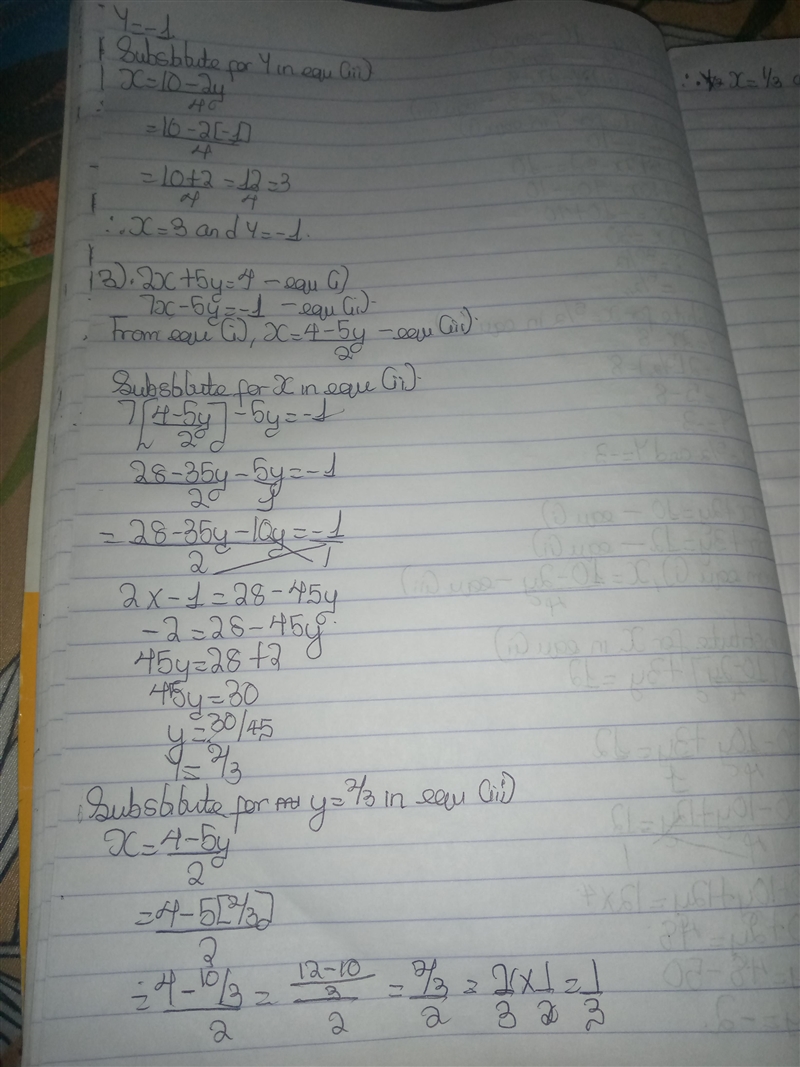 Y=-1
Substitute for Y in equ (iii)
x=10-2y/4
=10-2[-1]/4
=10+2/4=12/4=3
∴x=3 and Y=-1.
3). 2x+5y=4 - equ (i)
7x-5y=-1 - equ (ii).
From equ (i), x=4-5y/2 - equ (iii).
Substitute for x in equ (ii).
7[4-5y/2]-5y=-1
28-35y/2-5y/1=-1
=28-35y-10y/2=-1/1
2x-1=28-45y
-2=28-45y
45y=28+2
45y=30
y=30/45
Y=2/3
Substitute for y=2/3 in equ (iii)
x=4-5y/2
=4-5[2/3]/2
=4-10/3/2=12-10/3/2=2/3/2=2/3x1/2=1/3
x=1/3